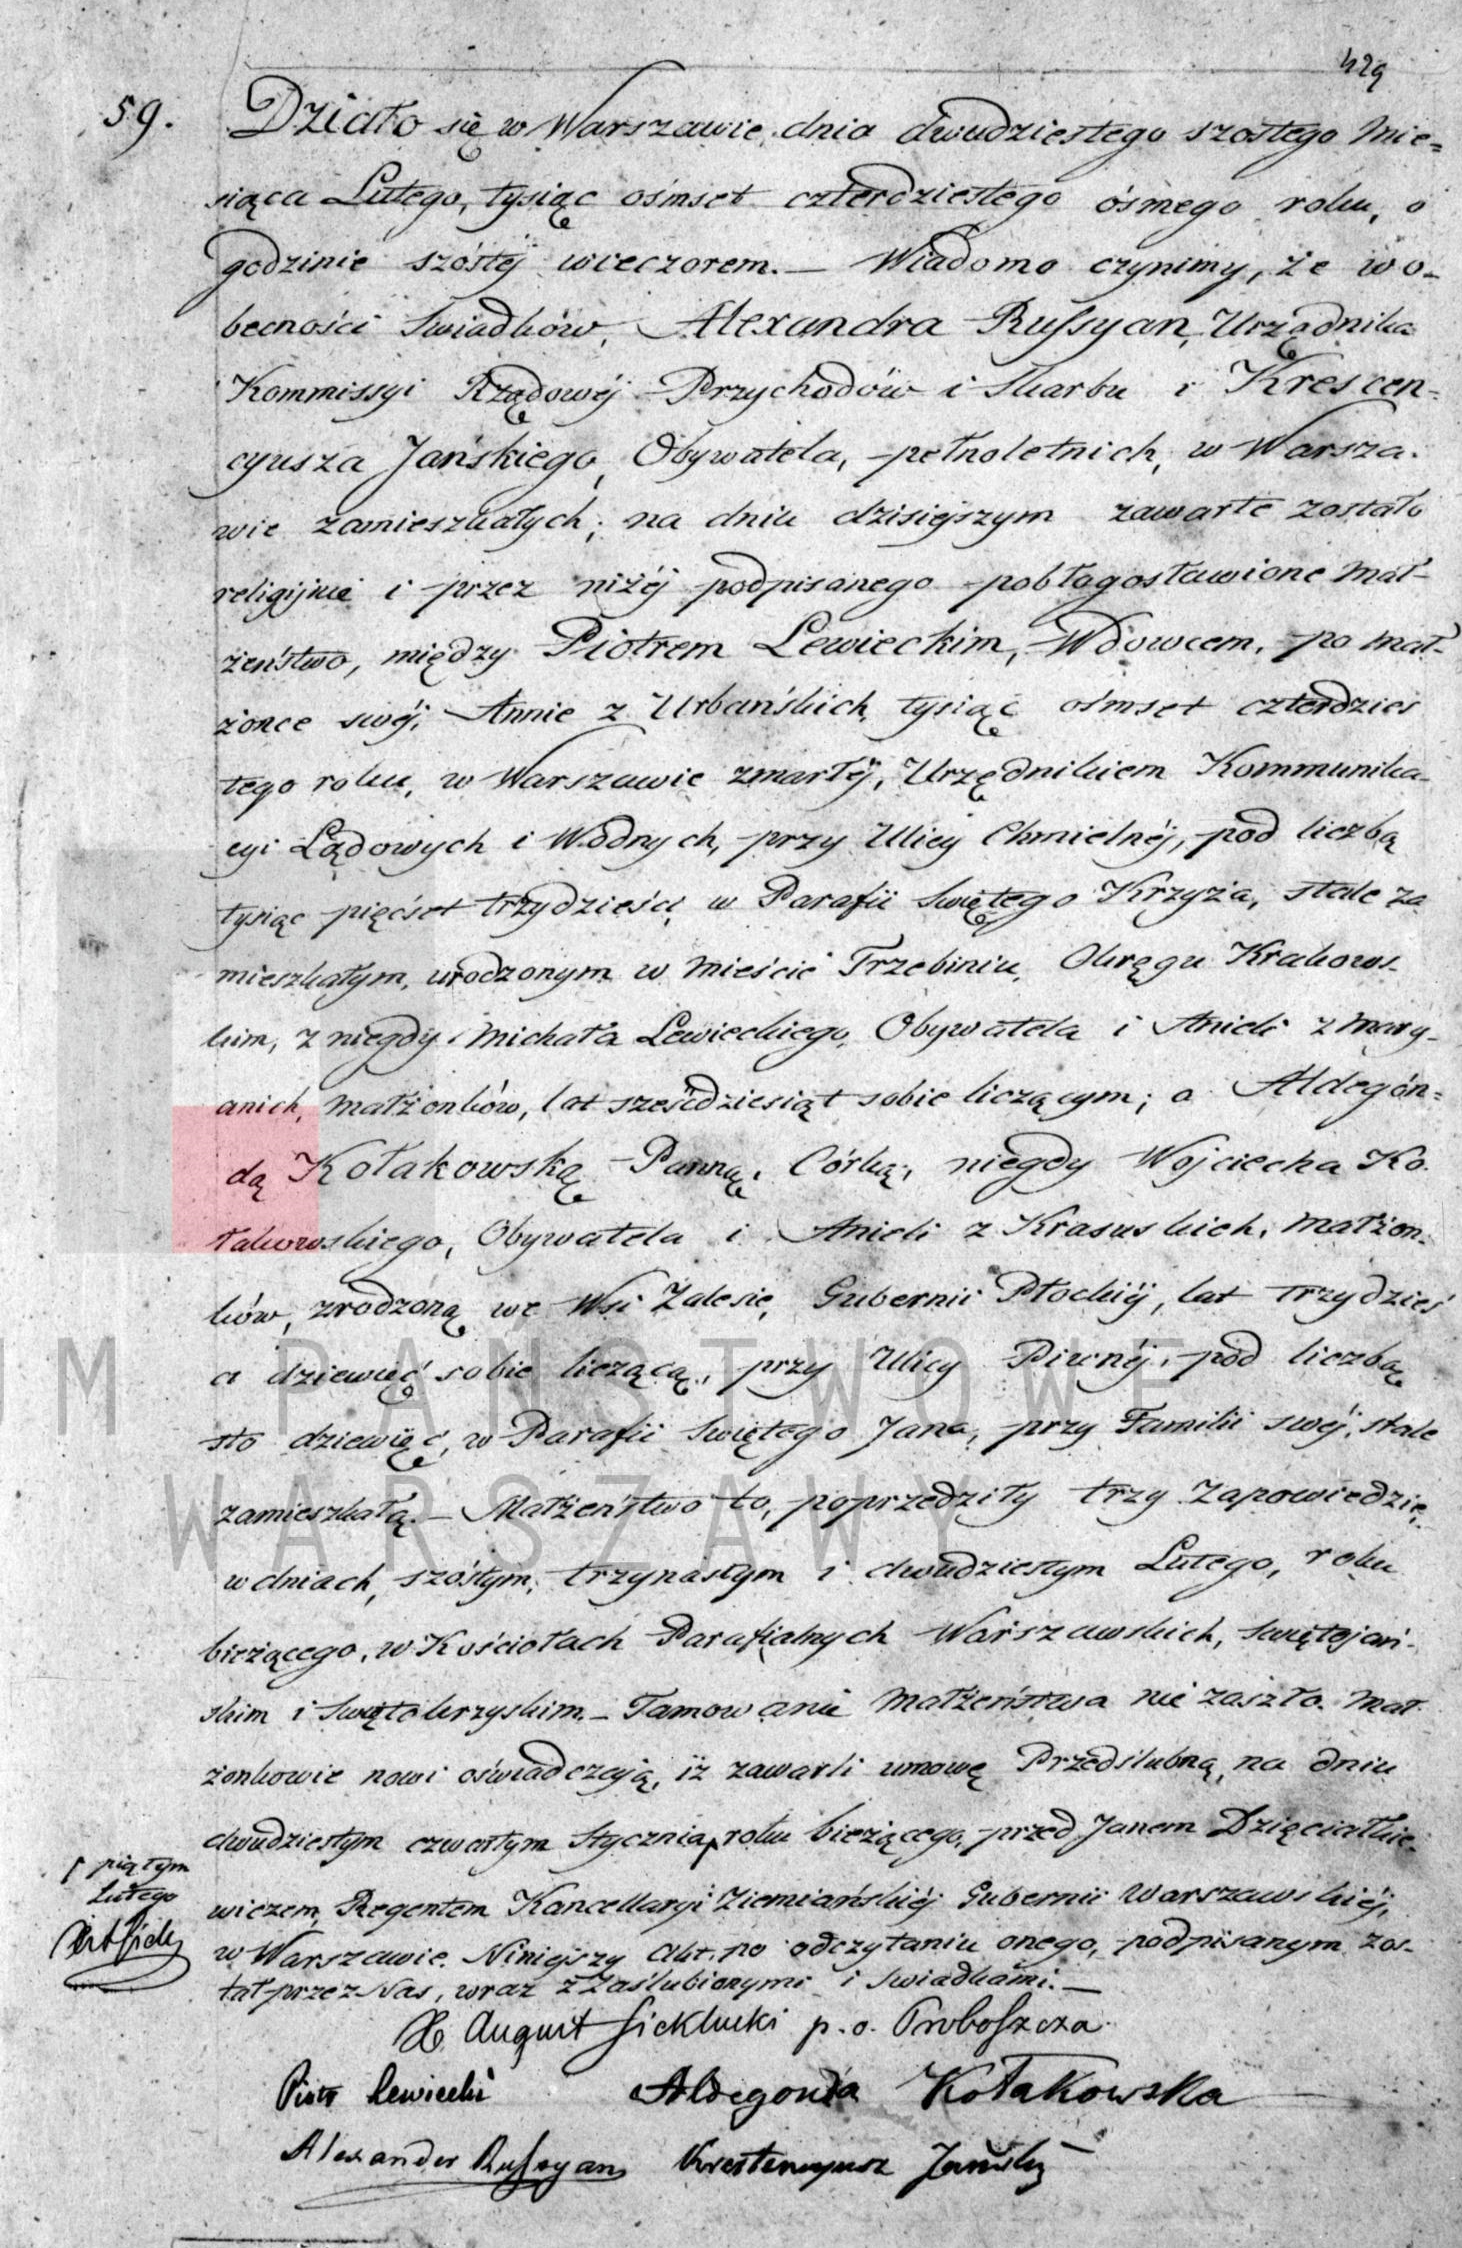 429
59. Działo się w Warszawie, dnia dwudziestego szóstego Mie=
siąca Lutego, tysiąc ośmset czterdziestego ósmego roku, o
godzinie szóstéj wieczorem.— Wiadomo czynimy, że w o-
becności Swiadków, Alexandra Russyan, Urzędnika
Kommissyi Rządowéj Przychodów i Skarbu i Krescen-
cyusza Jańskiego, Obywatela, pełnoletnich, w Warsza-
wie zamieszkałych; na dniu dzisiejszym zawarte zostało
religijne i przez niżéj podpisanego pobłogosławione Mał-
żeństwo, między Piotrem Lewieckim, Wdowcem, po Mał-
żonce swéj, Annie z Urbańskich, tysiąc ośmset czterdzies
tego roku, w Warszawie zmarłéj, Urzędnikiem Kommunika-
cyi Lądowych i Wodnych, przy Ulicy Chmielnéj, pod liczbą
tysiąc pięćset trzydzieści, w Parafii Świętego Krzyża, stale za
mieszkałym, urodzonym w Mieście Trzebiniu, Okręgu Krakows-
kim, z niegdy Michała Lewieckiego, Obywatela i Anieli z Mary-
anich, Małżonków, lat sześćdziesiąt sobie liczącym; a Aldegón=
dą Kołakowską Panną, Córką, niegdy Wojciecha Ko-
łakowskiego, Obywatela i Anieli z Krasuskich, Małżon-
ków, zrodzoną we Wsi Zalesie, Gubernii Płockiéj, lat trzydzieś
ci dziewięć sobie liczącą, przy Ulicy Piwnéj, pod liczbą
sto dziewięć, w Parafii Świętego Jana, przy Familii swéj, stale
zamieszkałą.— Małżeństwo to, poprzedziły trzy Zapowiedzie,
w dniach, szóstym, trzynastym i dwudziestym Lutego, roku
bieżącego, w Kościołach Parafialnych Warszawskich, Świętojań-
skim i Świętokrzyskim.— Tamowanie Małżeństwa nie zaszło. Mał
żonkowie nowi oświadczają, iż zawarli umowę Przedślubną, na dniu
dwudziestym czwartym Stycznia roku bieżącego, przed Janem Dzięciałkie-
piątym
Lutego
wiczem, Regentem Kancellaryi Ziemiańskiéj Gubernii Warszawskiéj,
w Warszawie. Niniejszy Akt po odczytaniu onego, podpisanym zos-
tał przez Nas, wraz z Zaślubionymi i Swiadkami.—
X. August Sieklucki p. o. Proboszcza
Piotr Lewiecki Aldegonda Kołakowska
Alexander Russyan Krescencyusz Jański
UM PAŃSTWOWE
WARSZAWY